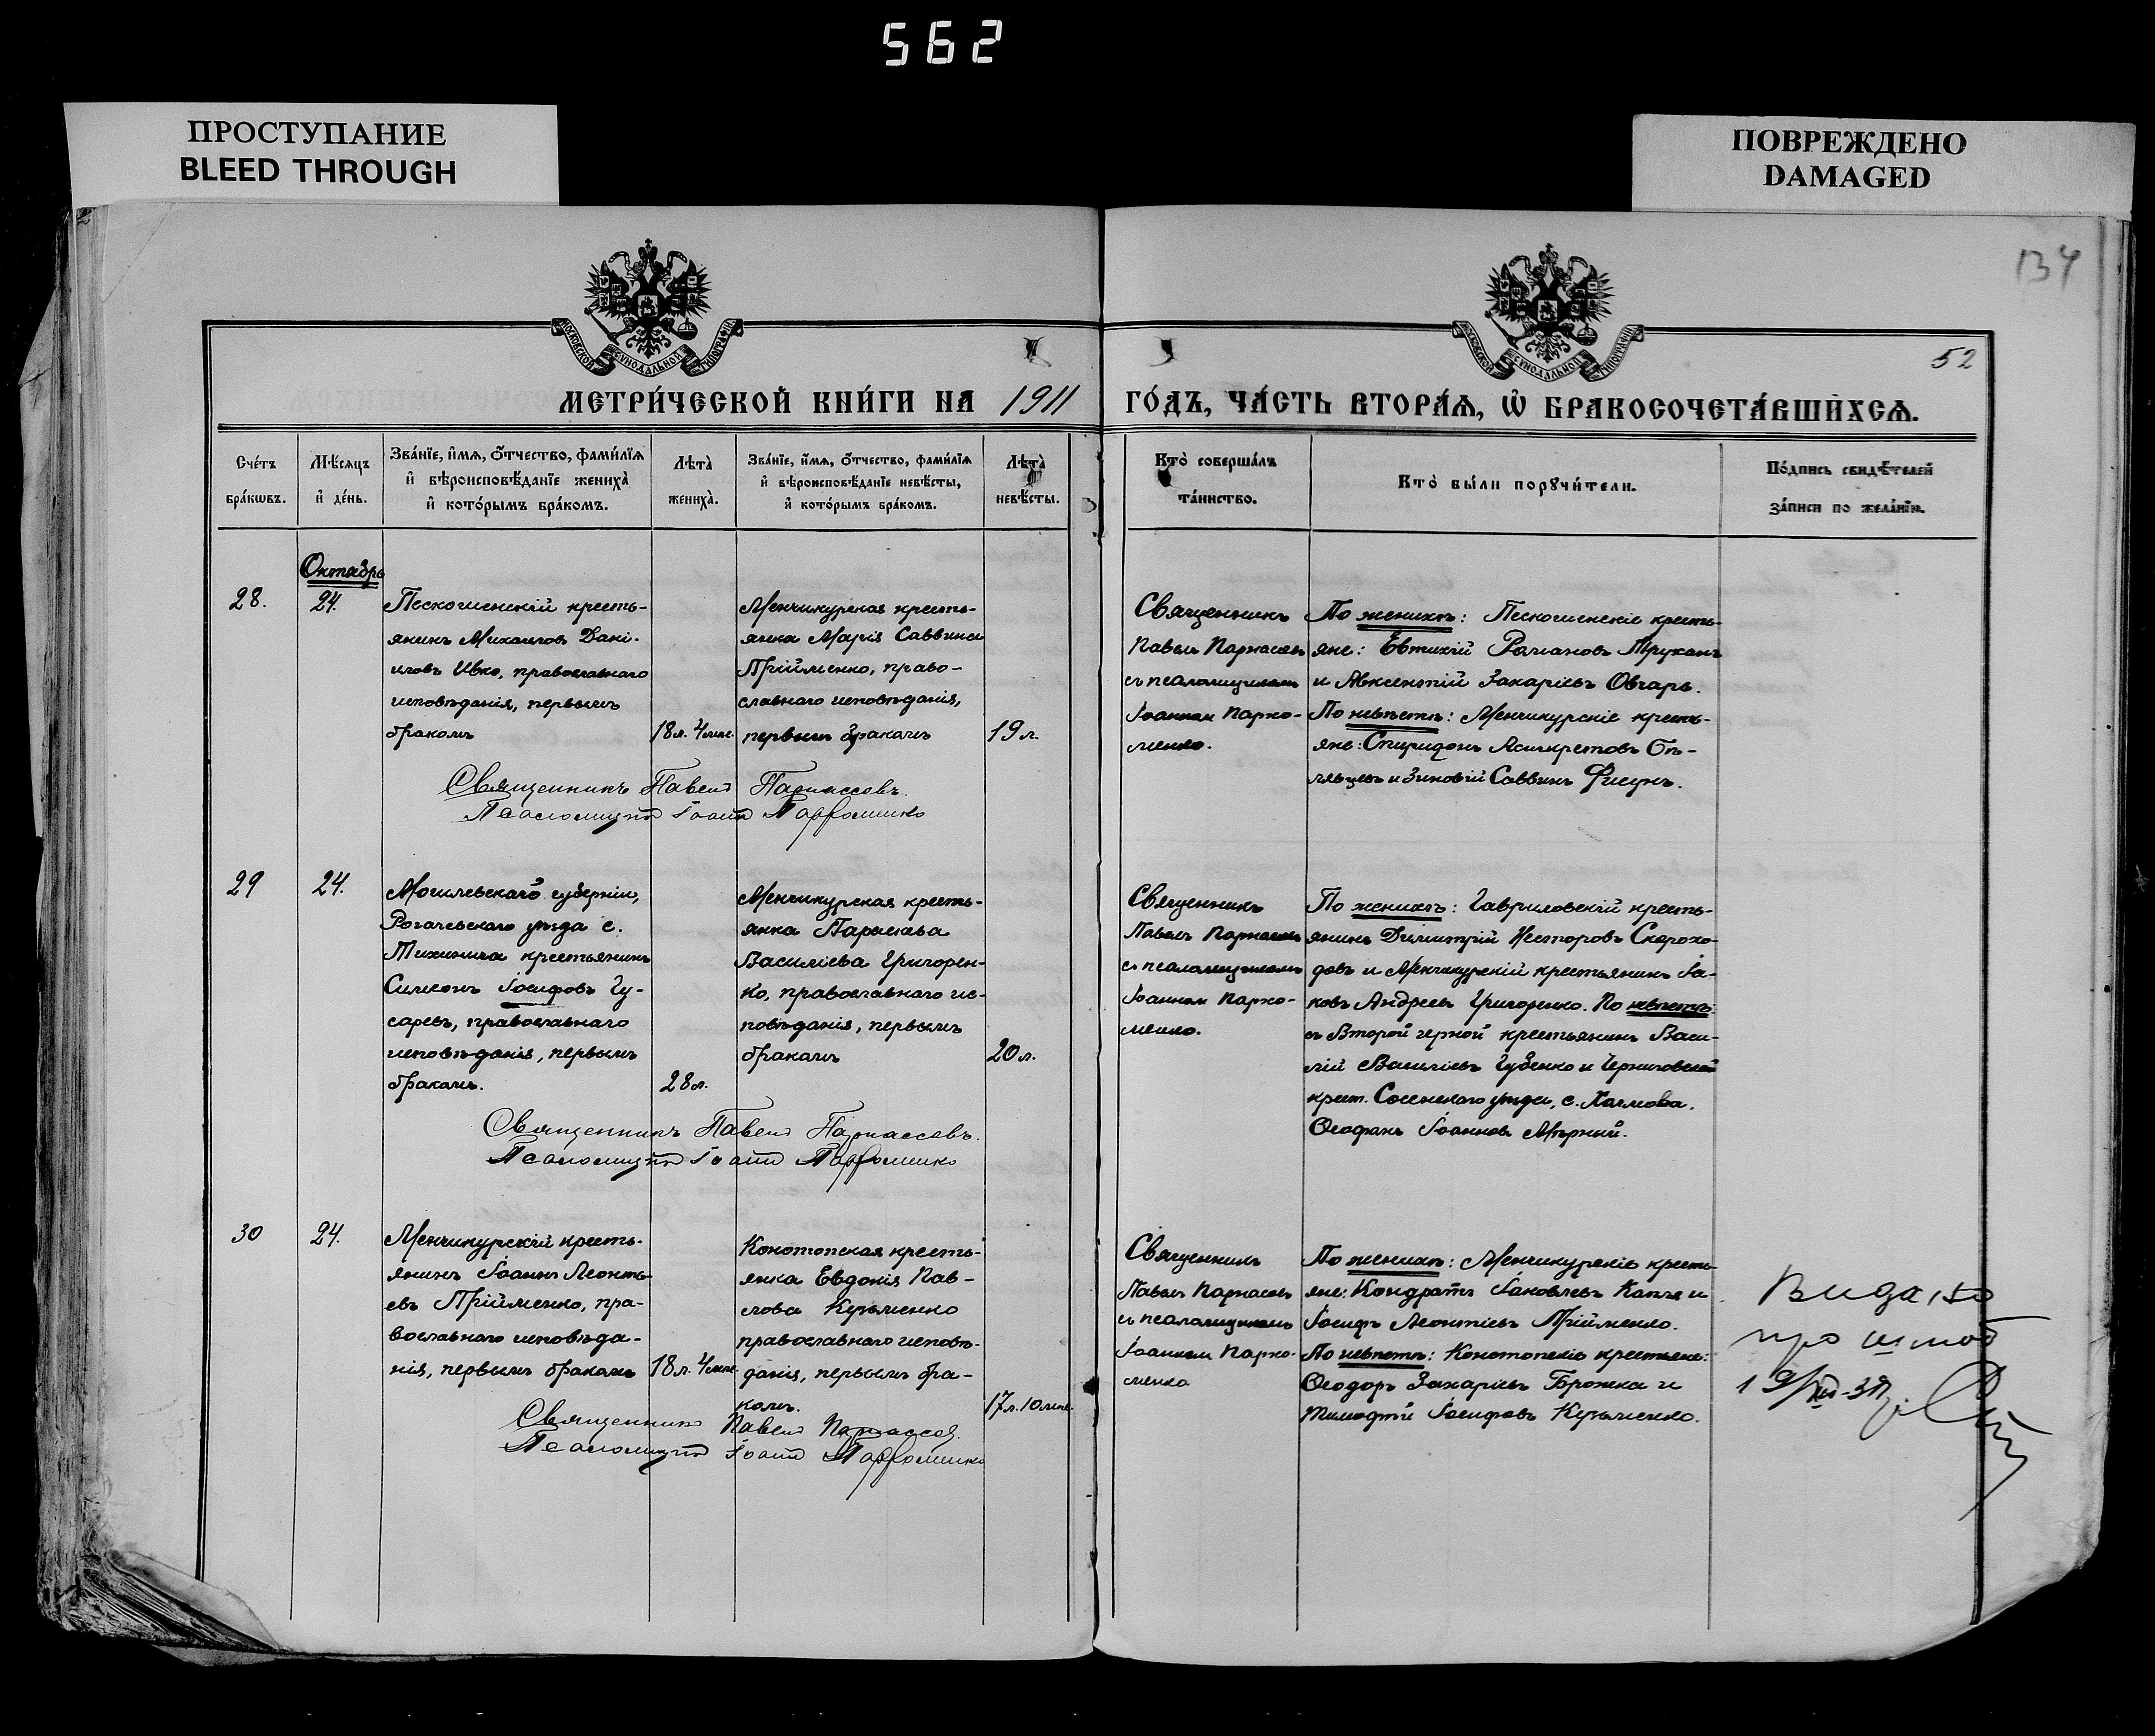 562
ПРОСТУПАНИЕ
BLEED THROUGH
ПОВРЕЖДЕНО
DAMAGED
134
52
МОСКОВСКОЙ СѴНОДАЛЬНОЙ ТИПОГРАФІИ
МОСКОВСКОЙ СѴНОДАЛЬНОЙ ТИПОГРАФІИ
МЕТРИ́ЧЕСКОЙ КНИ́ГИ НА 1911 ГО́ДЪ, ЧА́СТЬ ВТОРА́Ѧ, Ѡ҆ БРАКОСОЧЕТА́ВШИХСѦ.
Сче́тъ
бра́кѡвъ.
Мѣ́сяцъ
и҆ де́нь.
Зва́нїе, и҆́мѧ, ѻ҆́тчество, фами́лїѧ
и҆ вѣроисповѣ́данїе жениха̀
и҆ кото́рымъ бра́комъ.
Лѣта̀
жениха̀.
Зва́нїе, и҆́мѧ, ѻ҆́тчество, фами́лїѧ
и҆ вѣроисповѣ́данїе невѣ́сты,
и҆ кото́рымъ бра́комъ.
Лѣта̀
невѣ́сты.
Кто̀ соверша́лъ
та́инство.
Кто̀ бы́ли порꙋчи́тели.
По́дпись свидѣ́телей
за́писи по жела́нїю.
Октябрь
28.
24.
Пескошенскій кресть-
янинъ Михаилъ Дані-
иловъ Ивко, православнаго
исповѣданія, первымъ
бракомъ
18 л. 4 мѣс.
Менчикурская кресть-
янка Марія Саввина
Прійменко, право-
славнаго исповѣданія,
первымъ бракомъ
19 л.
Священникъ
Павелъ Парнассовъ
съ псаломщикомъ
Іоанномъ Пархо-
менко.
По женихѣ: Пескошенскіе кресть-
яне: Евтихій Романовъ Труханъ
и Авксентій Захаріевъ Овчаръ.
По невѣстѣ: Менчикурскіе кресть-
яне: Спиридонъ Асигкретовъ Бѣ-
ляевъ и Зиновій Саввинъ Фисунъ.
Священникъ Павелъ Парнассовъ.
Псаломщикъ Іоаннъ Пархоменко
29
24.
Могилевской губерніи,
Рогачевскаго уѣзда с.
Тихинича крестьянинъ
Симеонъ Іосифовъ Гу-
саревъ, православнаго
исповѣданія, первымъ
бракомъ.
28 л.
Менчикурская кресть-
янка Параскева
Василіева Григорен-
ко, православнаго ис-
повѣданія, первымъ
бракомъ
20 л.
Священникъ
Павелъ Парнассовъ
съ псаломщикомъ
Іоанномъ Пархо-
менко.
По женихѣ: Гавриловскій кресть-
янинъ Димитрій Несторовъ Скорохо-
довъ и Менчикурскій крестьянинъ Іа-
ковъ Андреевъ Григоренко. По невѣстѣ:
съ Второй черной крестьянинъ Васи-
лій Василіевъ Губенко и Черниговской
крест. Сосенскаго уѣзда, с.
Ѳеофанъ Іоанновъ Мѣрный.
Священникъ Павелъ Парнассовъ.
Псаломщикъ Іоаннъ Пархоменко
30
24.
Менчикурскій кресть-
янинъ Іоаннъ Леонть-
евъ Прійменко, пра-
вославнаго исповѣда-
нія, первымъ бракомъ
18 л. 4 мѣс.
Конотопская кресть-
янка Евдокія Пав-
лова Кузьменко
православнаго исповѣ-
данія, первымъ бра-
комъ.
17 л. 10 мѣс.
Священникъ
Павелъ Парнассовъ
съ псаломщикомъ
Іоанномъ Пархо-
менко
По женихѣ: Менчикурскіе кресть-
яне: Кондратъ Іаковлевъ Капля и
Іосифъ Леонтіевъ Прійменко.
По невѣстѣ: Конотопскіе крестьяне:
Ѳеодоръ Захаріевъ Брожка и
Тимофей Іосифовъ Кузьменко.
Видано
про шлюб
19/XII-38 р.
Священникъ Павелъ Парнассовъ.
Псаломщикъ Іоаннъ Пархоменко